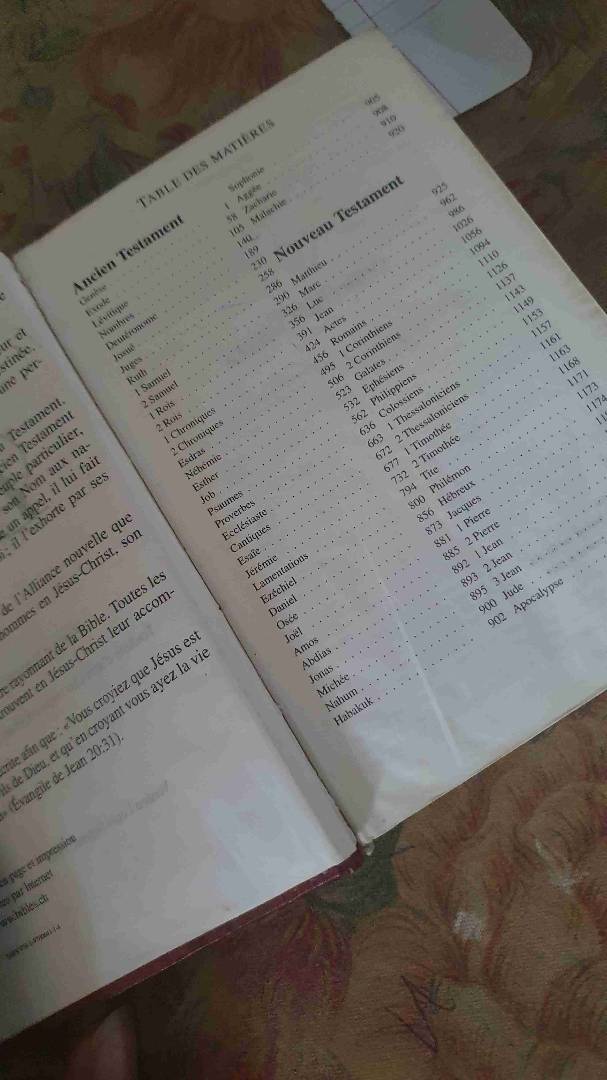 ur et
stinée.
une per-
Testament.
cien Testament
uple particulier,
son Nom aux na-
e un appel, il lui fait
il l'exhorte par ses
de l'Alliance nouvelle que
hommes en Jésus-Christ, son
re rayonnant de la Bible. Toutes les
trouvent en Jésus-Christ leur accom-
crite afin que : «Vous croyiez que Jésus est
ils de Dieu, et qu'en croyant vous ayez la vie
(Évangile de Jean 20:31).
en page et impression
par Internet
bibles.ch
TABLE DES MATIÈRES
Ancien Testament
Genèse 1
Exode 58
Lévitique 105
Nombres 140
Deutéronome 189
Josué 230
Juges 258
Ruth 286
1 Samuel 290
2 Samuel 326
1 Rois 356
2 Rois 391
1 Chroniques 424
2 Chroniques 456
Esdras 495
Néhémie 506
Esther 523
Job 532
Psaumes 562
Proverbes 636
Ecclésiaste 663
Cantiques 672
Esaïe 677
Jérémie 732
Lamentations 794
Ezéchiel 800
Daniel 856
Osée 873
Joël 881
Amos 885
Abdias 892
Jonas 893
Michée 895
Nahum 900
Habakuk 902
Sophonie 905
Aggée 908
Zacharie 910
Malachie 920
Nouveau Testament
Matthieu 925
Marc 962
Luc 986
Jean 1026
Actes 1056
Romains 1094
1 Corinthiens 1110
2 Corinthiens 1126
Galates 1137
Ephésiens 1143
Philippiens 1149
Colossiens 1153
1 Thessaloniciens 1157
2 Thessaloniciens 1161
1 Timothée 1163
2 Timothée 1168
Tite 1171
Philémon 1173
Hébreux 1174
Jacques
1 Pierre
2 Pierre
1 Jean
2 Jean
3 Jean
Jude
Apocalypse